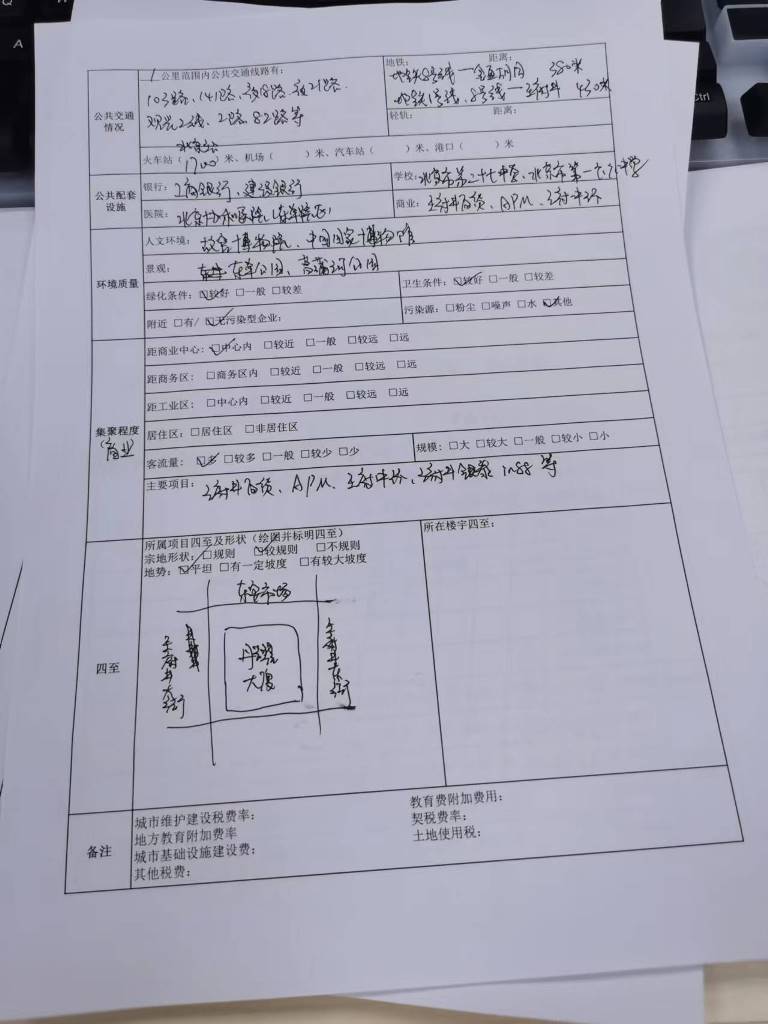 公共交通情况
1公里范围内公共交通线路有:
103路、141路、夜8路、夜21路、
观光2线、2路、82路等
地铁: 距离:
地铁8号线——金鱼胡同 380米
地铁1号线、8号线——王府井 430米
轻轨: 距离:
北京站
火车站(1700)米、机场( )米、汽车站( )米、港口( )米
公共配套设施
银行: 工商银行、建设银行
学校: 北京市第二十七中学、北京市第一六六中学
医院: 北京协和医院(东单院区)
商业: 王府井百货、APM、王府中环
环境质量
人文环境: 故宫博物院、中国国家博物馆
景观: 东单公园、菖蒲河公园
绿化条件: ☑较好 □一般 □较差
卫生条件: ☑较好 □一般 □较差
附近 □有/ ☑无污染型企业:
污染源: □粉尘 □噪声 □水 ☑其他
集聚程度
(商业)
距商业中心: ☑中心内 □较近 □一般 □较远 □远
距商务区: □商务区内 □较近 □一般 □较远 □远
距工业区: □中心内 □较近 □一般 □较远 □远
居住区: □居住区 □非居住区
客流量: ☑多 □较多 □一般 □较少 □少
规模: □大 □较大 □一般 □较小 □小
主要项目: 王府井百货、APM、王府中环、王府井银泰in88 等
四至
所属项目四至及形状(绘图并标明四至)
宗地形状: □规则 ☑较规则 □不规则
地势: ☑平坦 □有一定坡度 □有较大坡度
所在楼宇四至:
东安市场
王府井大街
丹耀
大厦
备注
城市维护建设税费率:
教育费附加费用:
地方教育附加费率
契税费率:
城市基础设施建设费:
土地使用税:
其他税费: